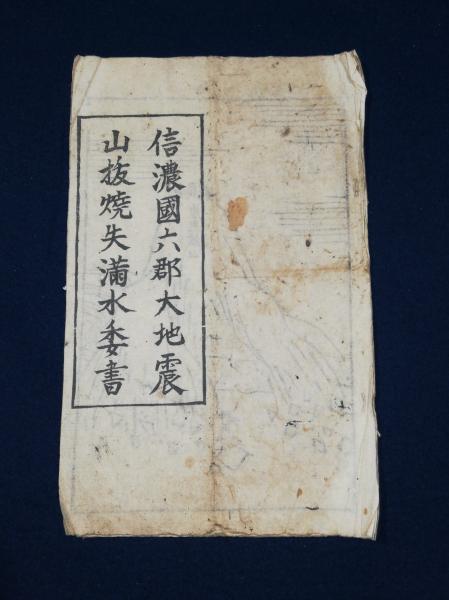 信濃國六郡大地震
山抜燒失滿水委書